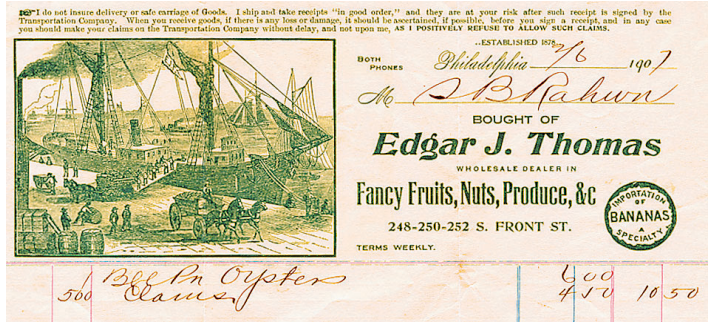 I do not insure delivery or safe carriage of Goods. I ship and take receipts "in good order," and they are at your risk after such receipt is signed by the
Transportation Company. When you receive goods, if there is any loss or damage, it should be ascertained, if possible, before you sign a receipt, and in any case
you should make your claims on the Transportation Company without delay, and not upon me, AS I POSITIVELY REFUSE TO ALLOW SUCH CLAIMS.
..ESTABLISHED 1878..
BOTH PHONES
Philadelphia 7/6 1907
M S B Rahwn
BOUGHT OF
Edgar J. Thomas
WHOLESALE DEALER IN
Fancy Fruits, Nuts, Produce, &c
248-250-252 S. FRONT ST.
TERMS WEEKLY.
IMPORTATION
OF
BANANAS
A
SPECIALTY
Oysters 600
500 Clams 450 10 50